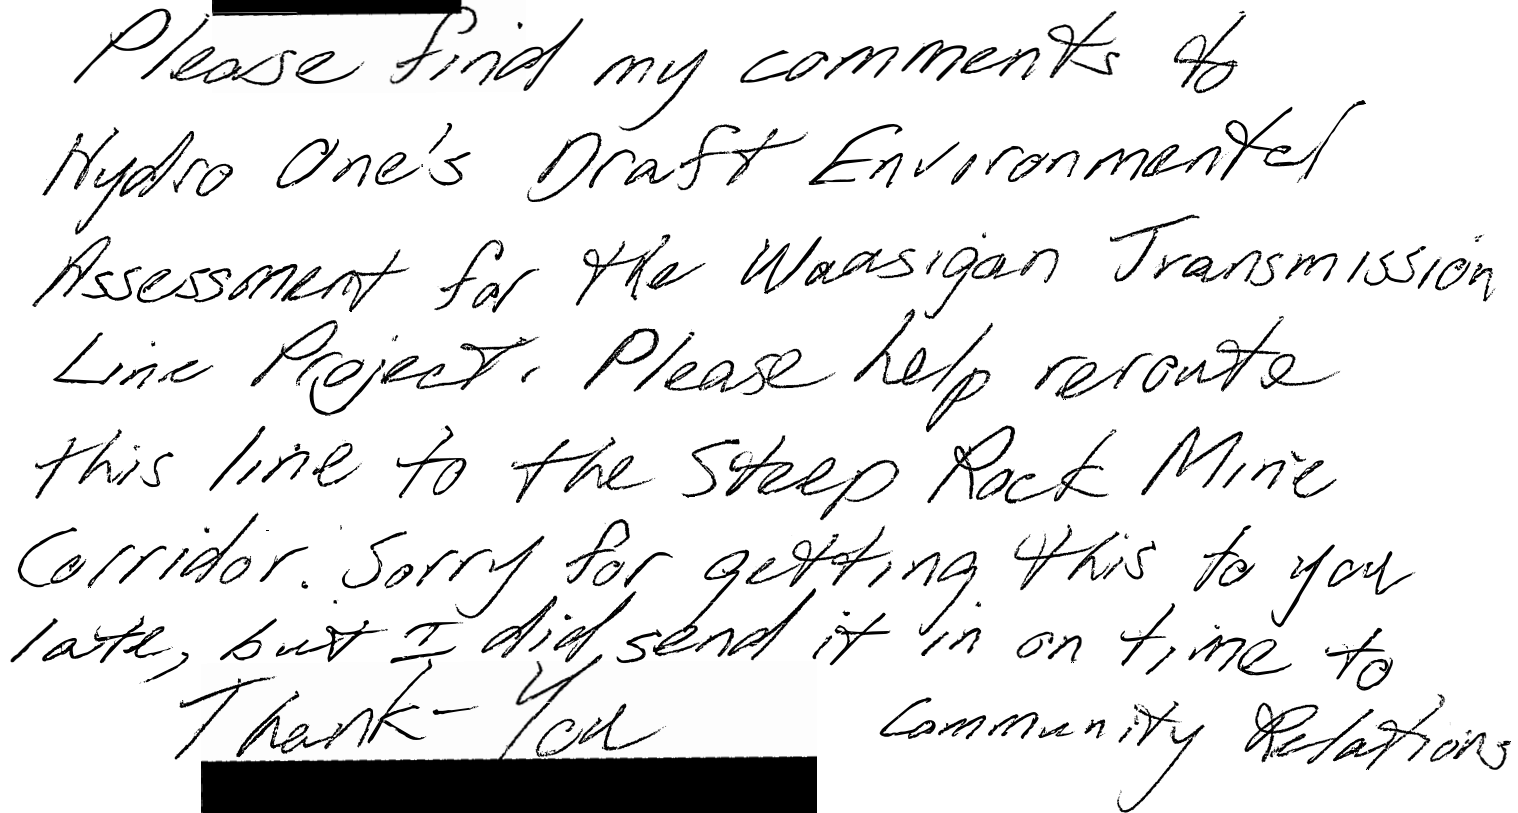 Please find my comments to
Hydro One's Draft Environmental
Assessment for the Waasigan Transmission
Line Project. Please help reroute
this line to the Steep Rock Mine
Corridor. Sorry for getting this to you
late, but I did send it in on time to
Community Relations
Thank-You